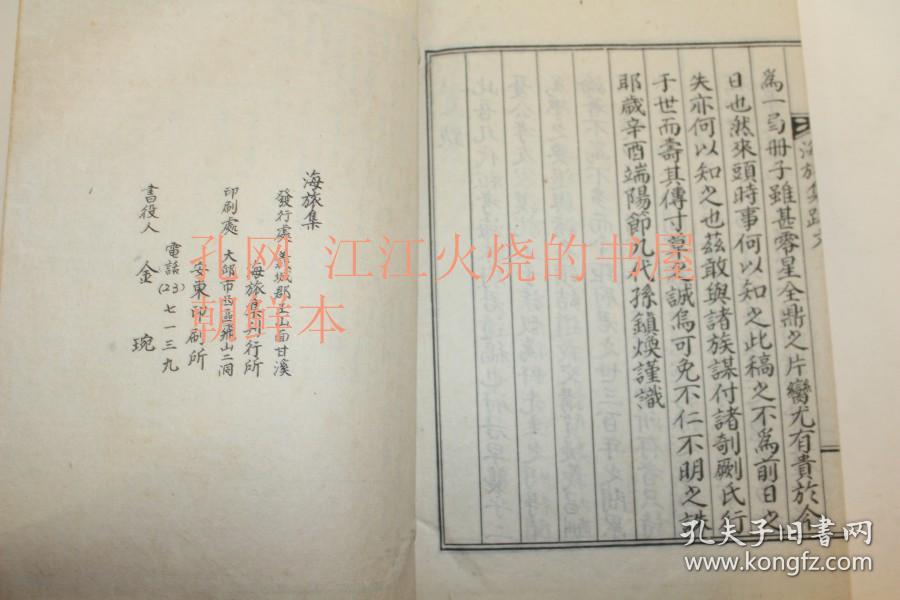 海旅集跋文
為一局册子雖甚零星全鼎之片臠尤有貴於今
日也然來頭時事何以知之此稿之不為前日之
失亦何以知之也玆敢與諸族謀付諸剞劂氏行
于世而壽其傳寸草之誠烏可免不仁不明之誅
耶歲辛酉端陽節九代孫鎮煥謹識
海旅集
發行處 城郡 山面甘溪
海旅集刊行所
印刷處 大邱市 區 山二洞
安東印刷所
電話(23)七一三九
書役人 金 琬
孔网 江江火烧的书屋
朝鲜本
孔夫子旧书网
www.kongfz.com